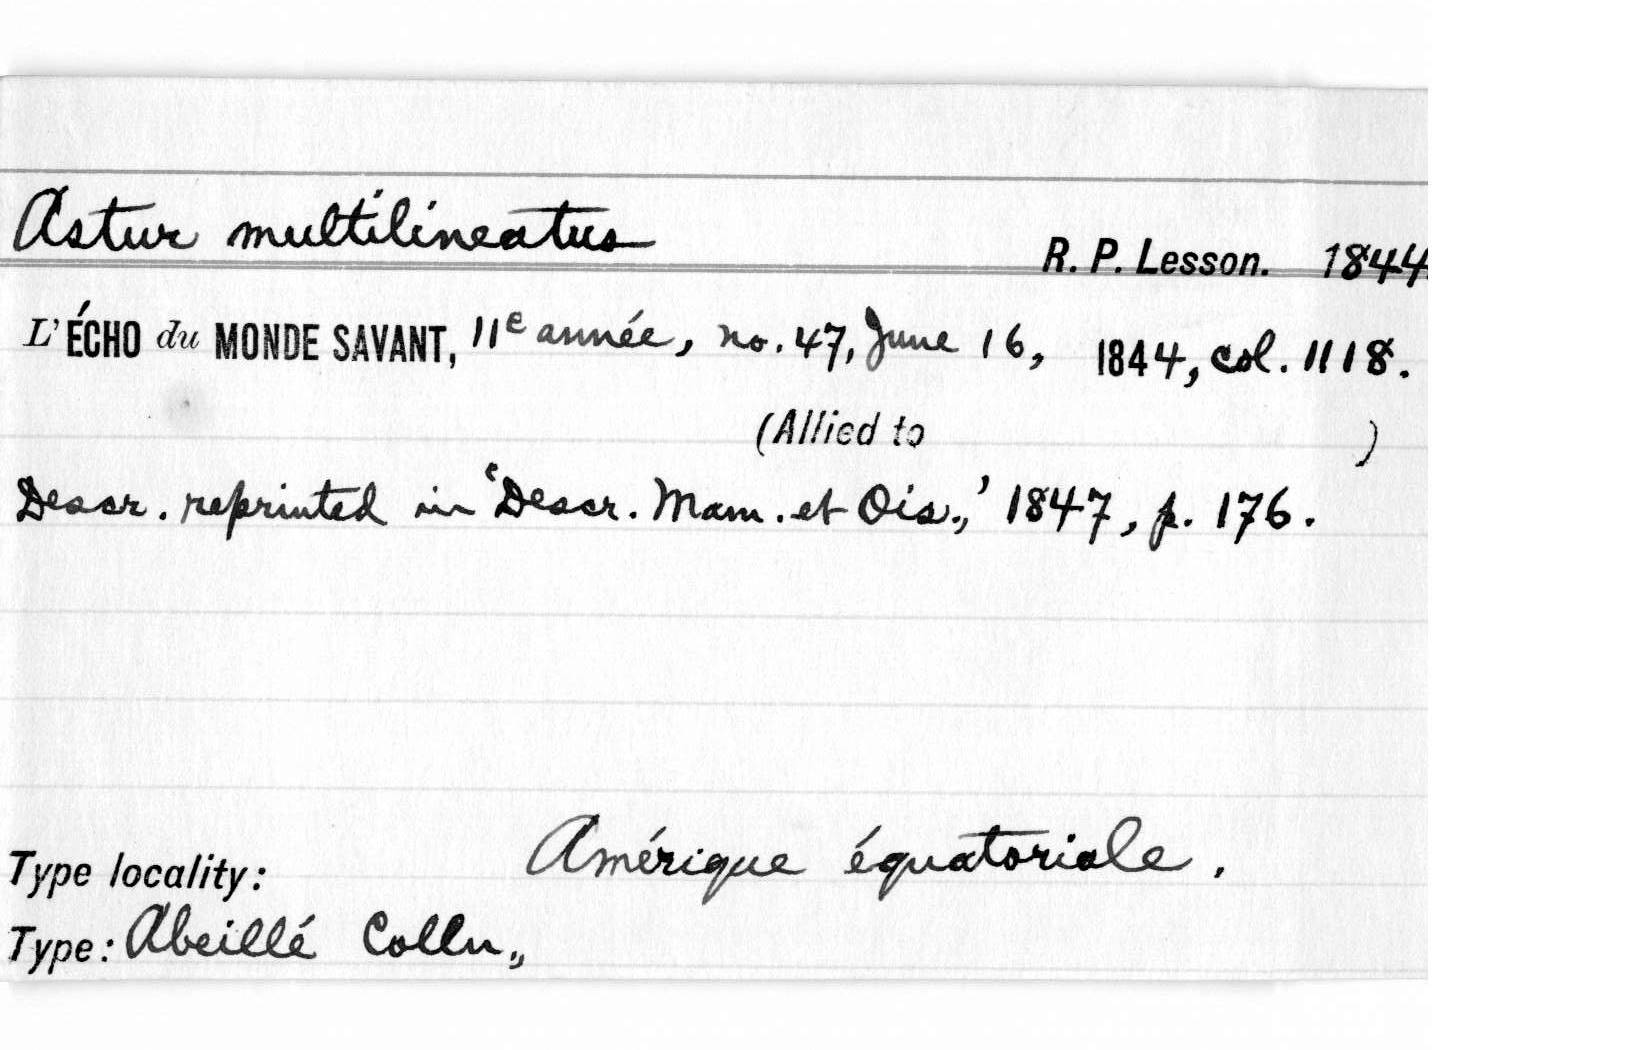 Astur multilineatus R. P. Lesson. 1844
L'ÉCHO du MONDE SAVANT, 11e année, no. 47, June 16, 1844, col. 1118.
(Allied to )
Descr. reprinted in 'Descr. Mam. et Ois.,' 1847, p. 176.
Type locality: Amérique équatoriale.
Type: Abeillé Colln.,